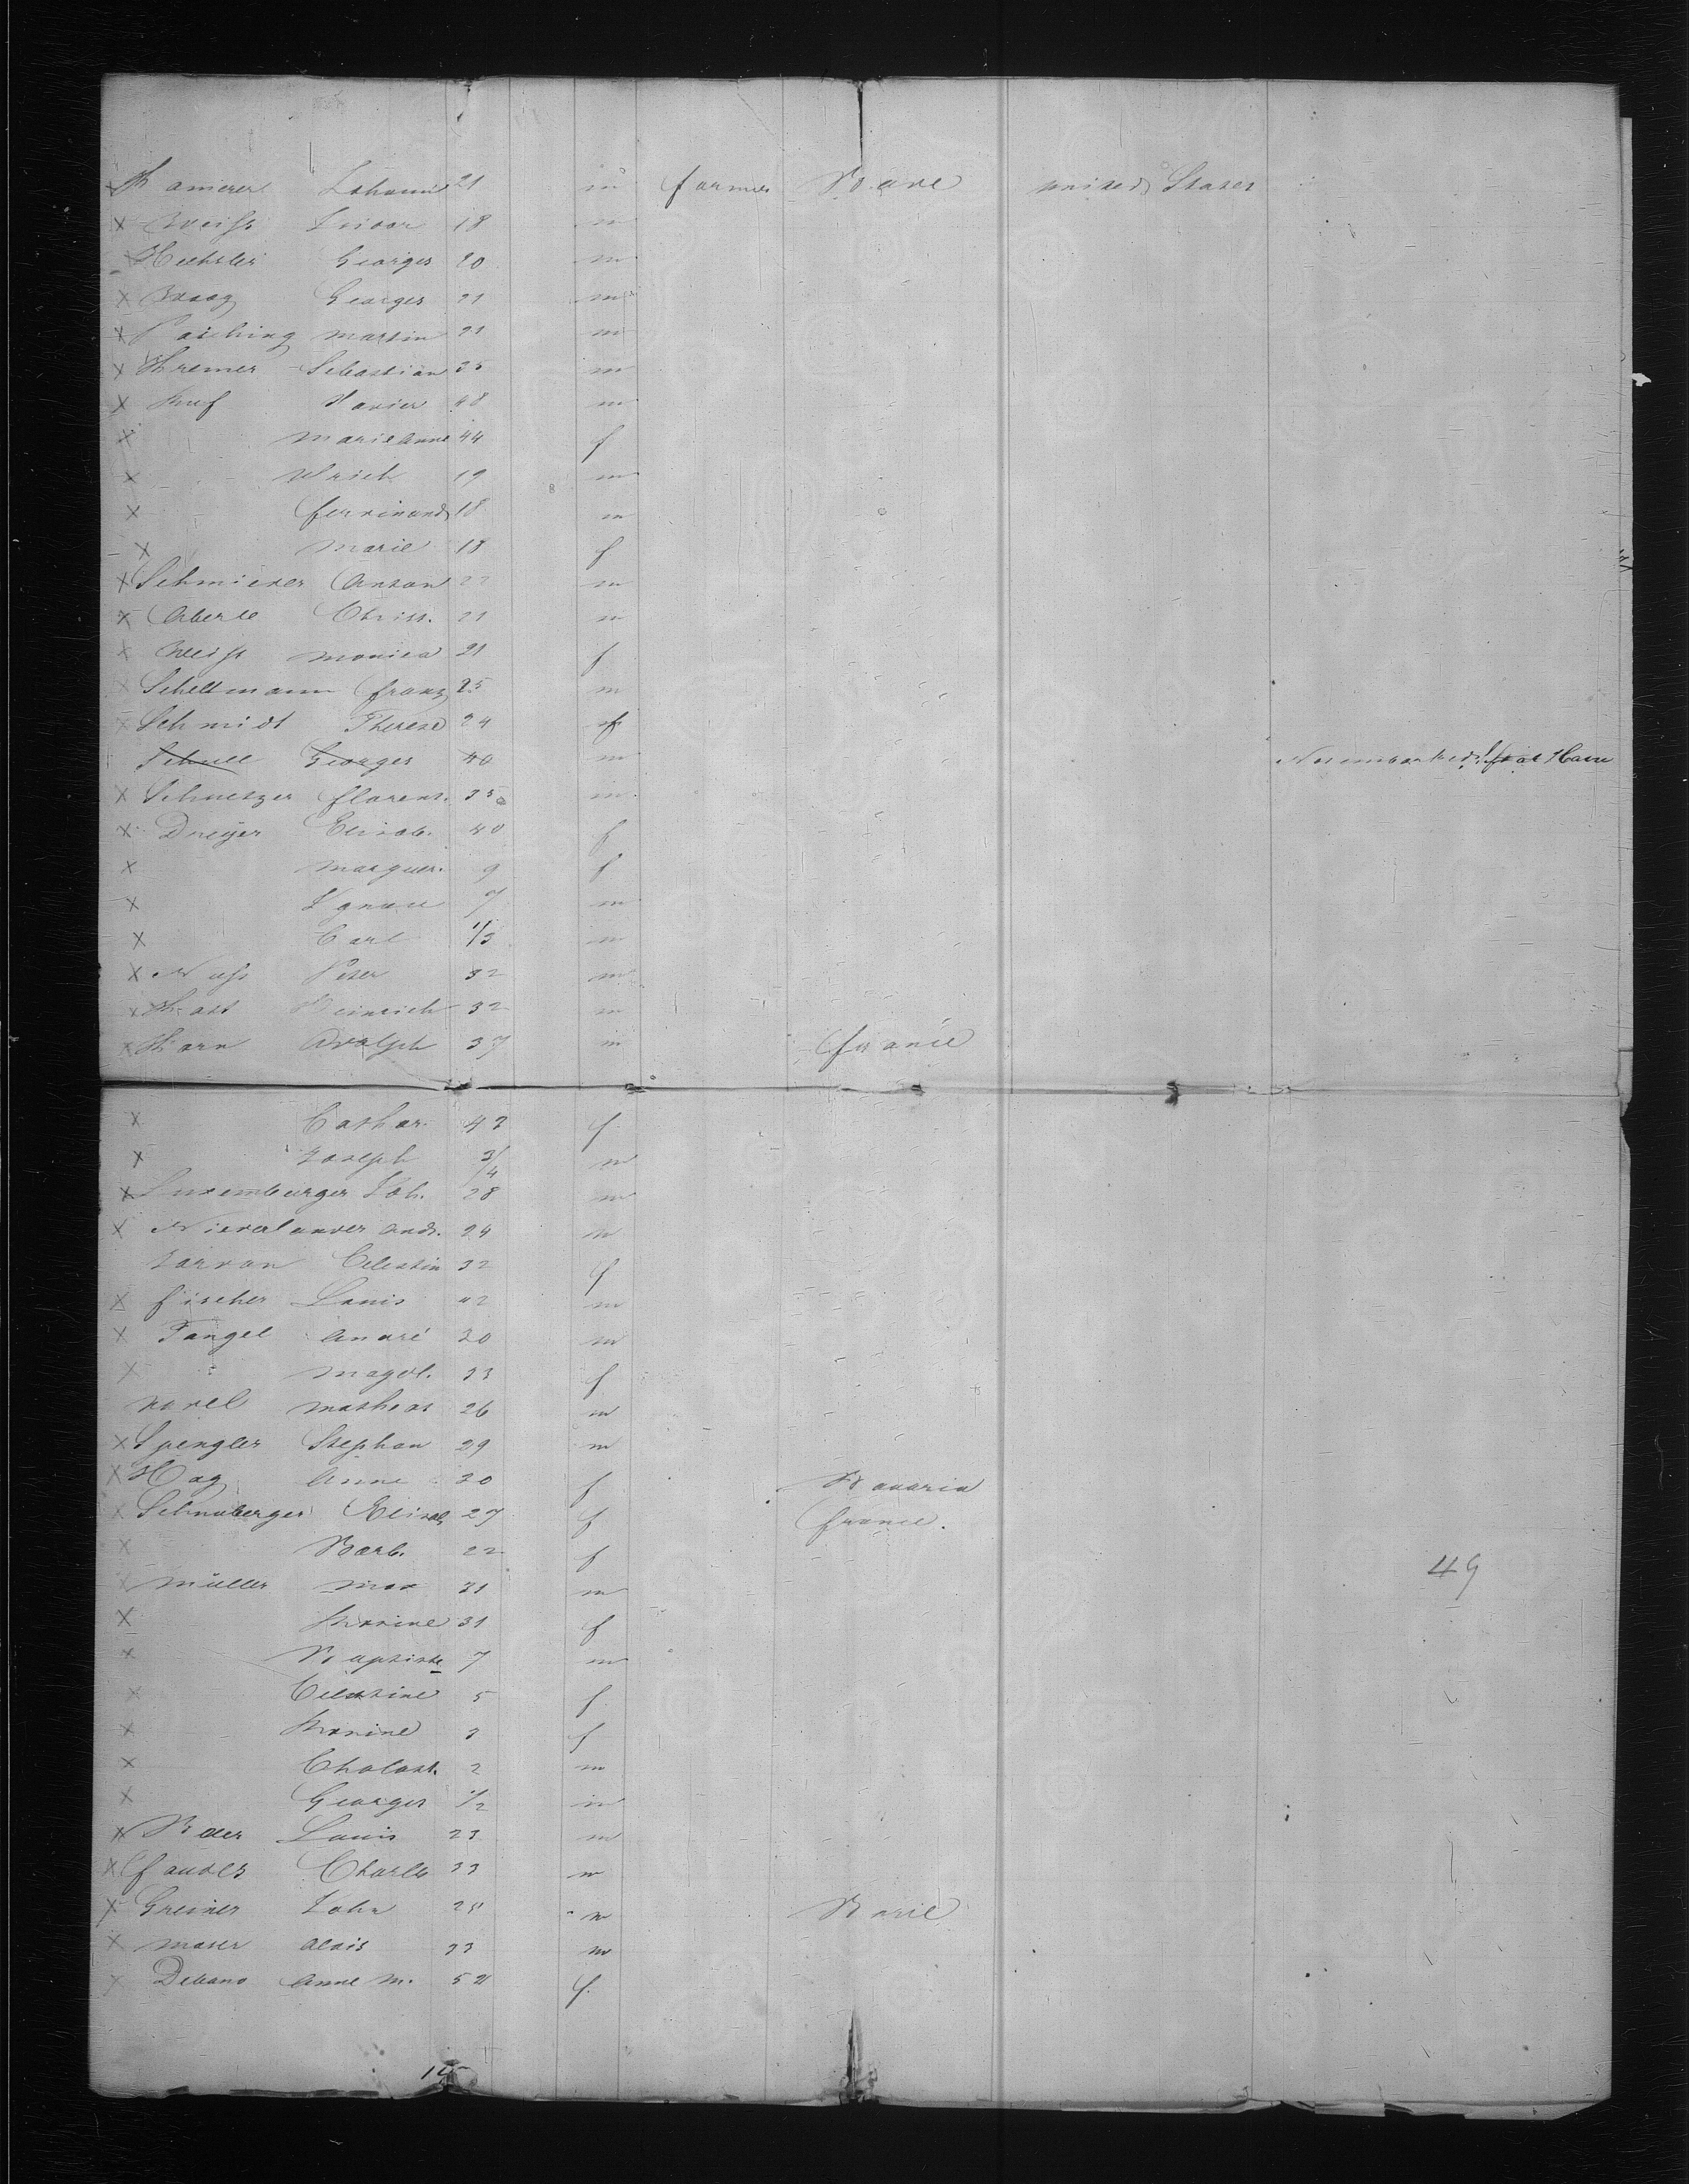 x Kamerer Johann 21 m farmer Bade united States
x Weiss 18 m
Georges 20 m
x Waag Georges 21 m
x martin 21 m
x Kremer Sebastian 35 m
x Kuef Xavier 48 m
x Marie Anne 44 f
x Ulrich 19 m
x ferdinand 18 m
x Marie 18 f
x Schmieder Anton 22 m
x Aberle Christ. 21 m
x Weiss monica 21 f
x Scheltmann franz 25 m
x Schmidt Therese 24 f
Schnell Georges 40 m Not embarked left at Havre
x Schnetzer florent. 35 m
x Dreÿer Elisab. 40 f
x marguer. 9 f
x Ignace 7 m
x Carl 1/3 m
x Nuss Peter 32 m
x Kast Heinrich 32 m
x Horn Adolph 37 m france
x Cathar. 42 f
x Joseph 3/4 m
x Luxemburger Joh. 28 m
x Niederlander andr. 24 m
Celestin 32 f
x fischer Louis 42 m
x Tangel André 30 m
x magdl. 33 f
mathias 26 m
x Spengler Stephan 29 m
x Hag Anne 30 f Bavaria
x Schnuberger Elisab 27 f france.
x Barb. 22 f
x Müller max 31 m
x 31 f
x Baptiste 7 m
x Celestine 5 f
x 3 f
x Cholast. 2 m
x Georges 1/2 m
x Beder Louis 23 m
x fauder Charles 33 m
x Greiner John 25 m
x moser alois 33 m
x Anne M. 52 f.
49